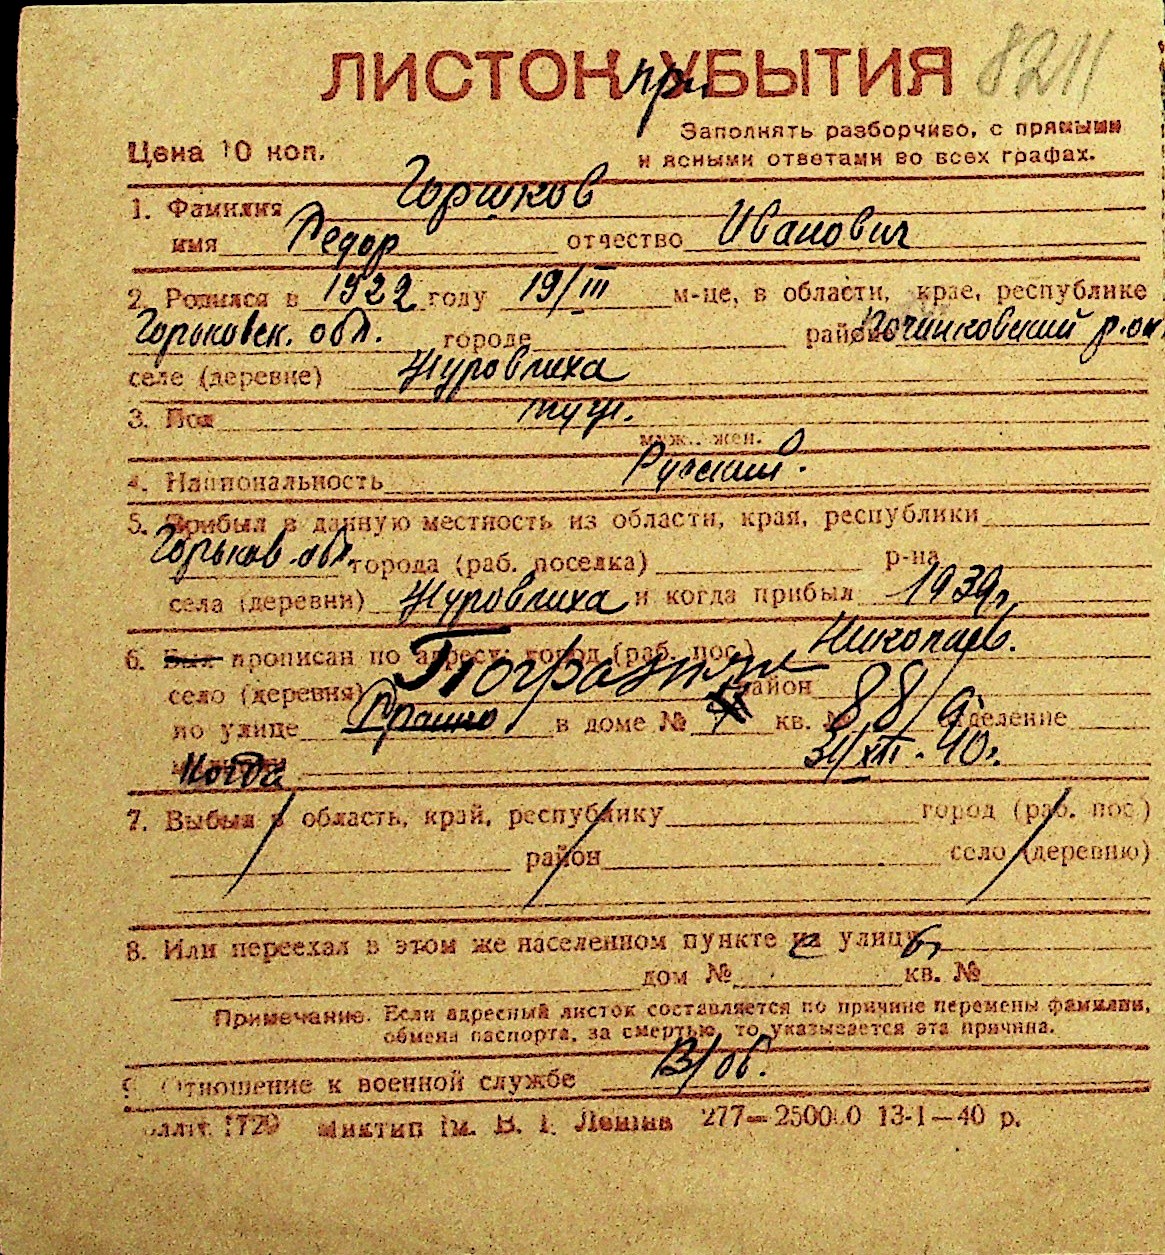 ЛИСТОК УБЫТИЯ
при
8211
Заполнять разборчиво, с прямыми
Цена 10 коп.
и ясными ответами во всех графах.
1. Фамилия Горшков
имя Федор отчество Иванович
2. Родился в 1922 году 19/III м-це, в области, крае, республике
Горьковск. обл. городе район Починковский р-он
селе (деревне) Журовлиха
3. Пол муж.
муж., жен.
4. Национальность Русский.
5. Прибыл в данную местность из области, края, республики
Горьков. обл. города (раб. поселка) р-на
села (деревни) Журовлиха и когда прибыл 1939г.
6. Был прописан по адресу: город (раб. пос.) Николаев.
село (деревня) район
по улице в доме № кв. № 88/ отделение
Когда 31/XII-40г.
7. Выбыл в область, край, республику город (раб. пос.)
район село (деревню)
8. Или переехал в этом же населенном пункте на улицу
дом № кв. №
Примечание. Если адресный листок составляется по причине перемены фамилии,
обмена паспорта, за смертью, то указывается эта причина.
9. Отношение к военной службе В/об.
1729 Миктип ім. В. І. Леніна 277—250000 13-I—40 р.